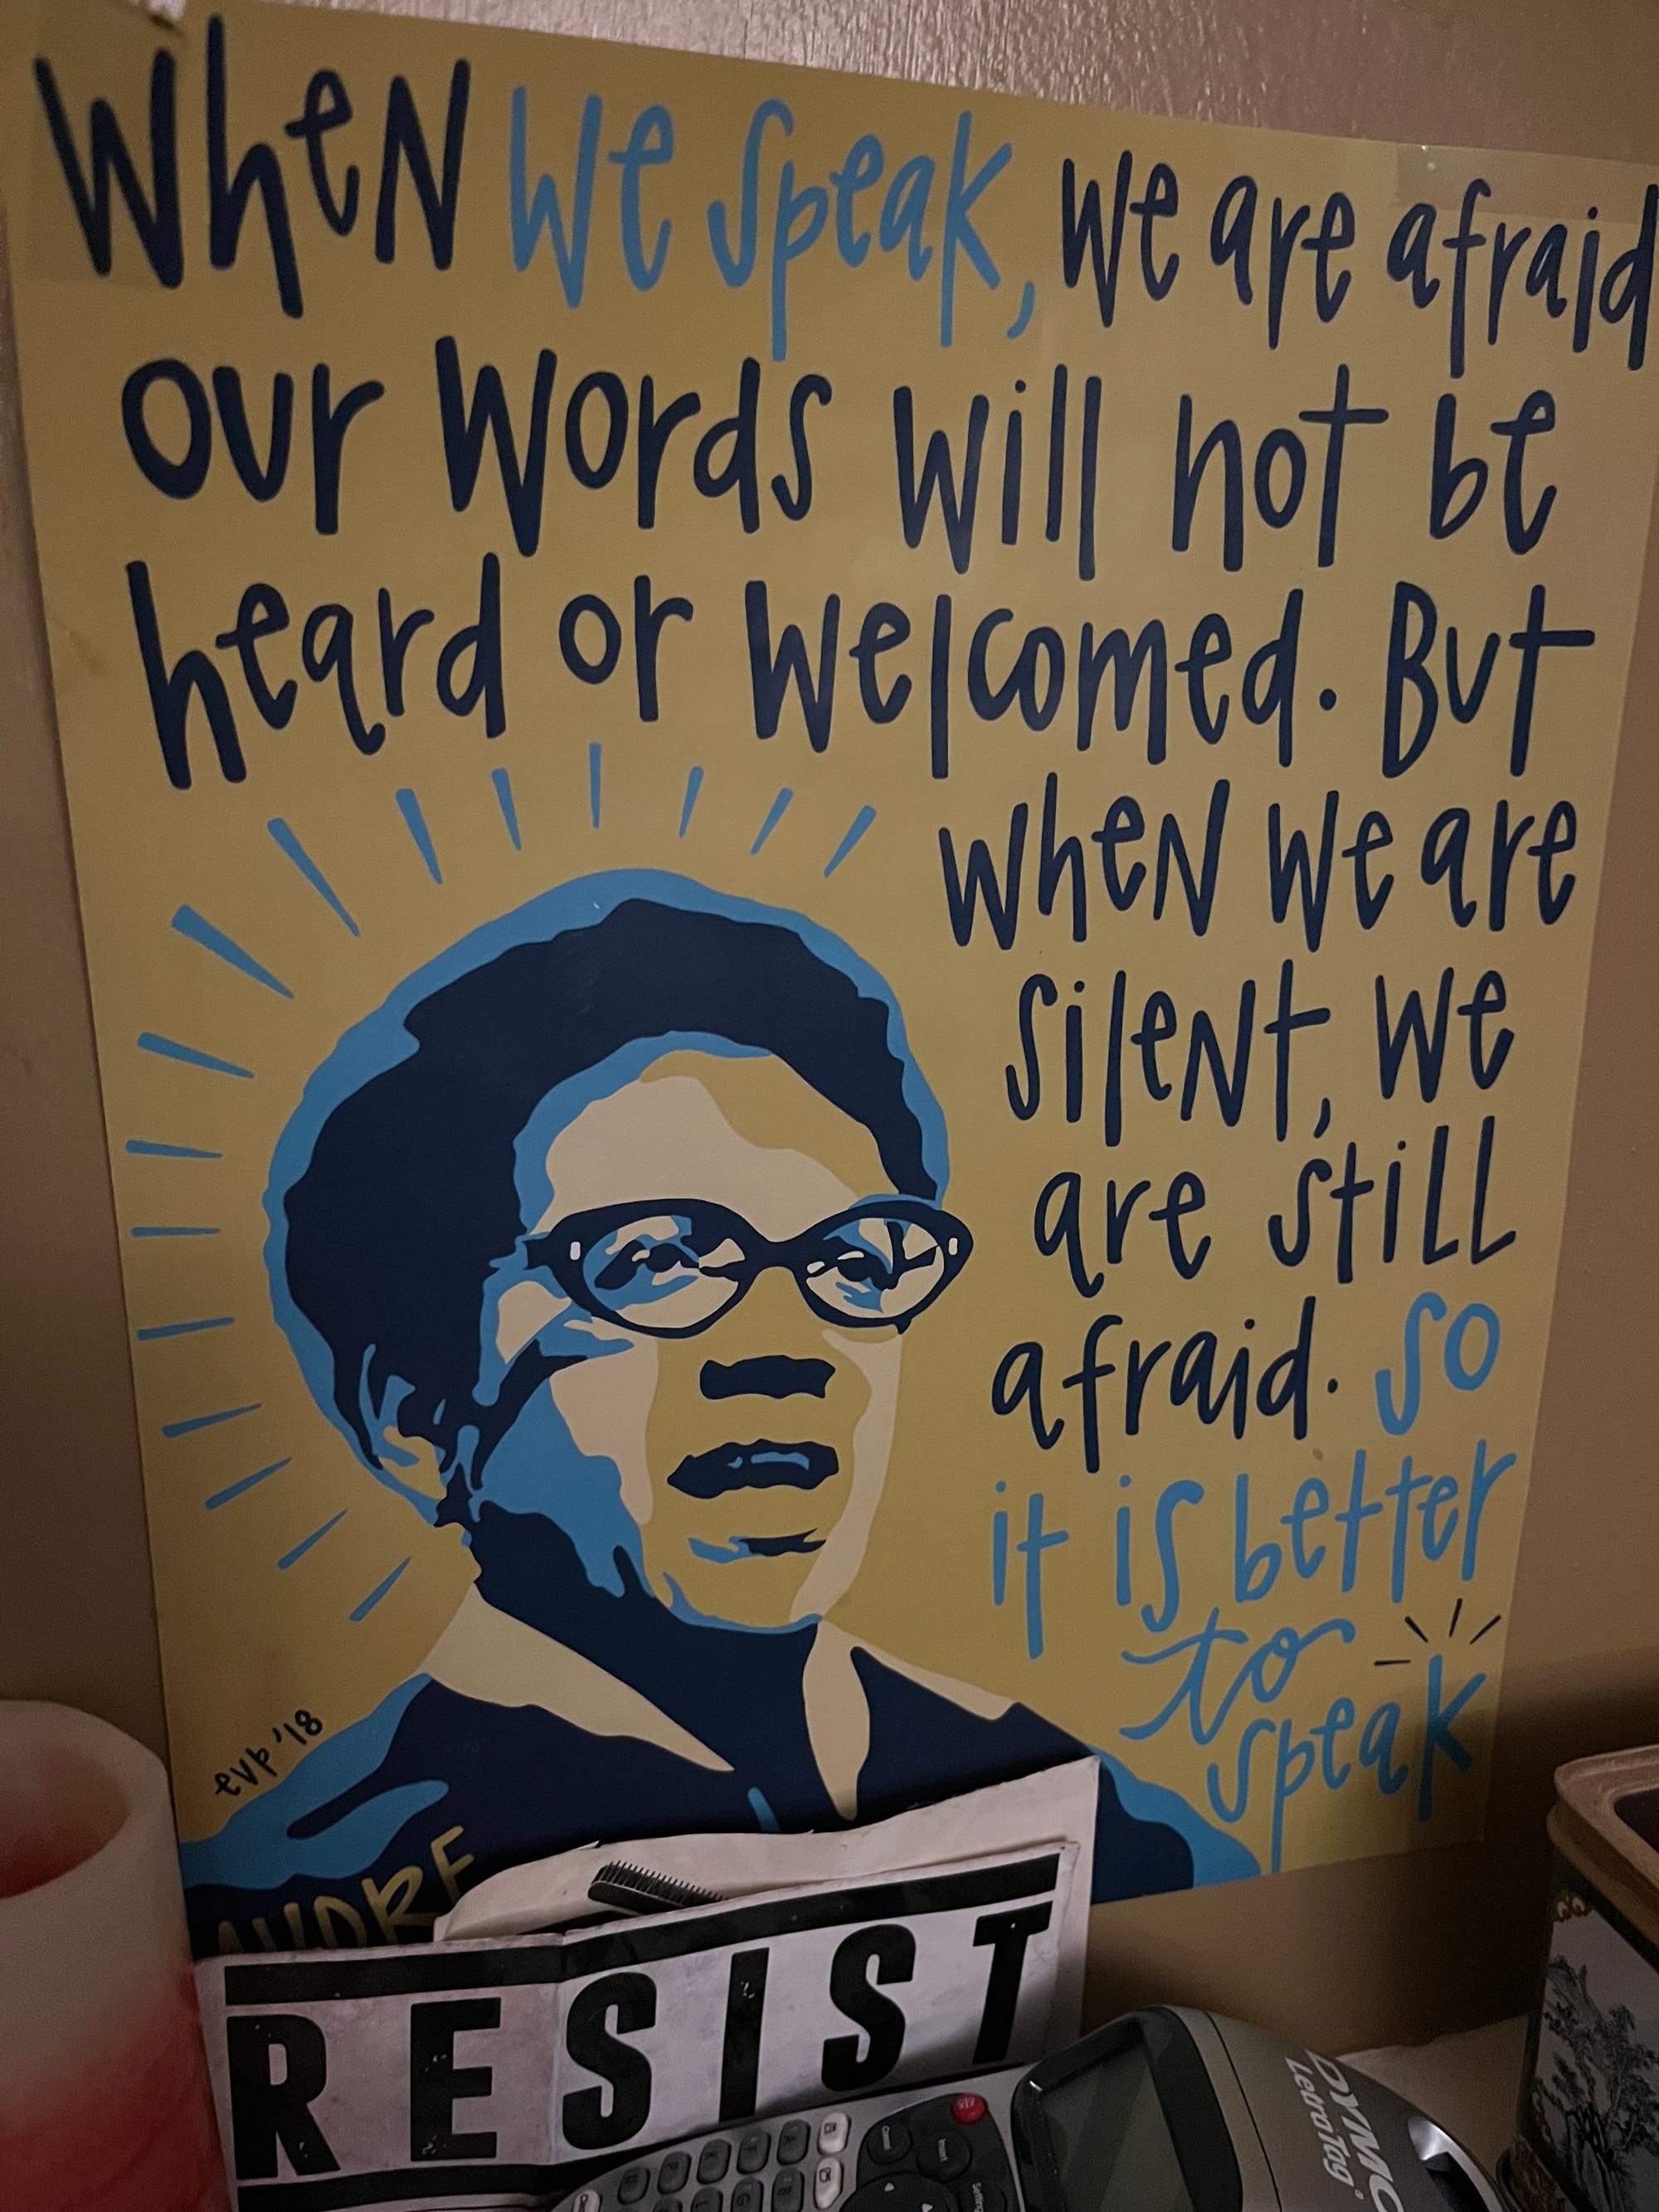 When we speak, we are afraid
our words will not be
heard or welcomed. But
when we are
silent, we
are still
afraid. So
it is better
to
speak
evp '18
AUDRE
RESIST
DYMO
LetraTag